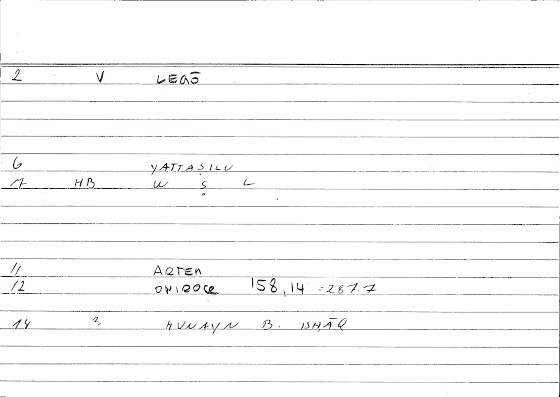 2 V LEGŌ
6 YATTAṢILU
7 HB W Ṣ L
11 ARTEM
12 ONIROCR 158,14 = 287.7
14 ?. ḤUNAYN B. ISHĀQ